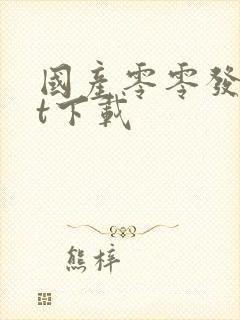 國產零零發
t下載
熊梓